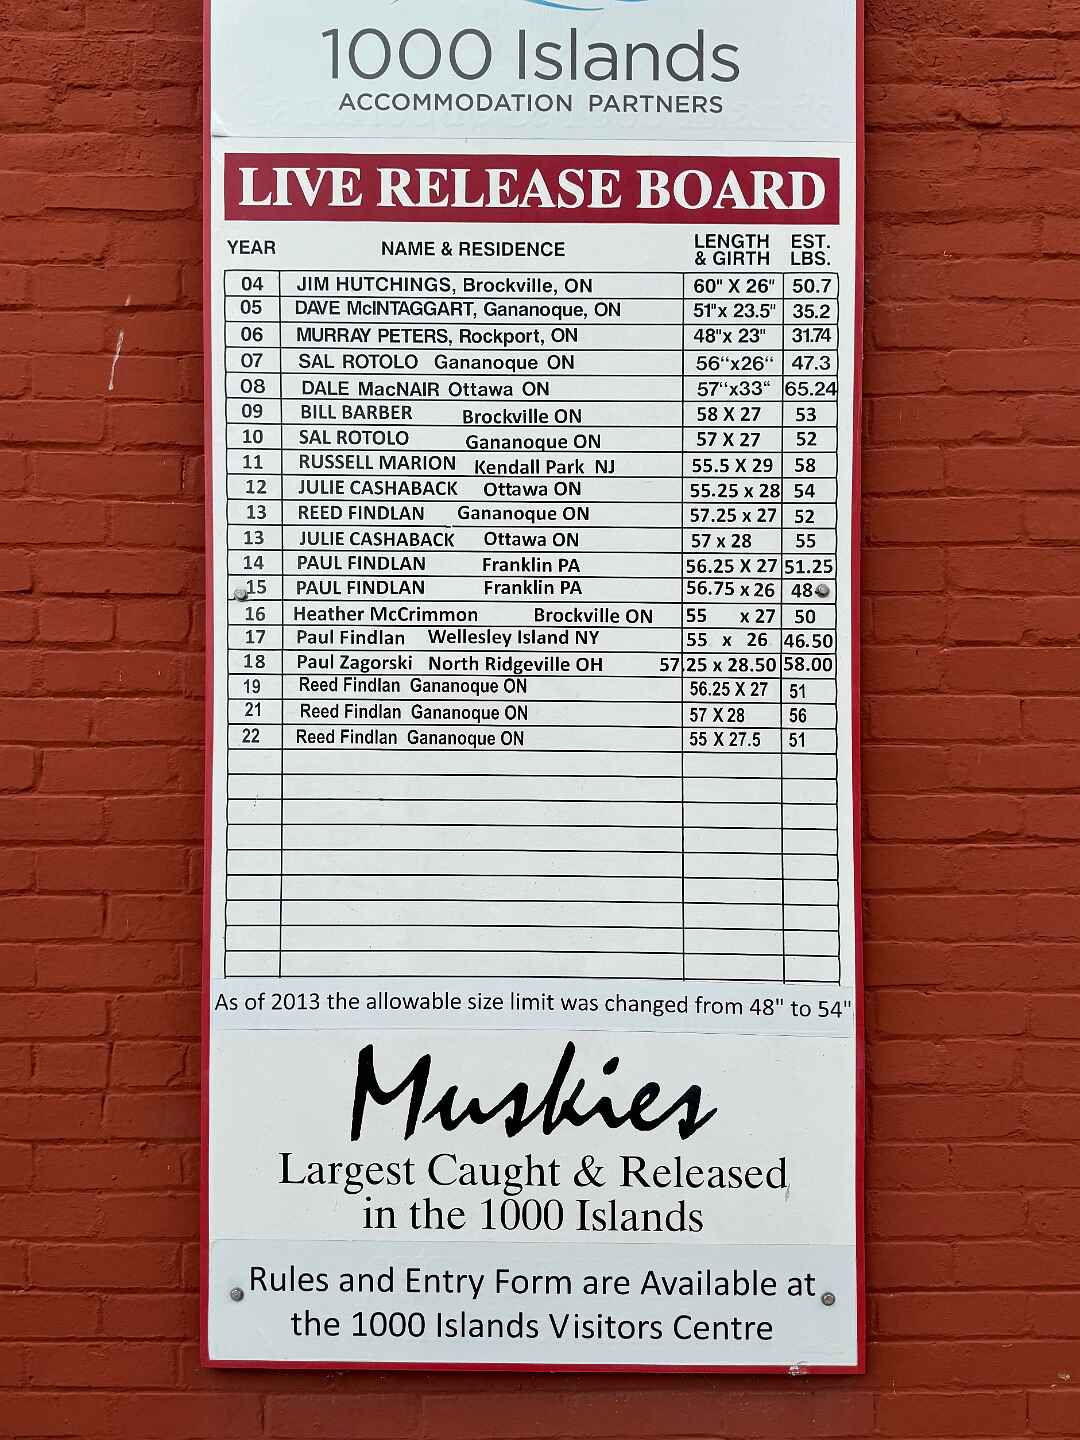 1000 Islands
ACCOMMODATION PARTNERS
LIVE RELEASE BOARD
YEAR NAME & RESIDENCE LENGTH & GIRTH EST. LBS.
04 JIM HUTCHINGS, Brockville, ON 60" X 26" 50.7
05 DAVE McINTAGGART, Gananoque, ON 51"x 23.5" 35.2
06 MURRAY PETERS, Rockport, ON 48"x 23" 31.74
07 SAL ROTOLO Gananoque ON 56“x26“ 47.3
08 DALE MacNAIR Ottawa ON 57“x33“ 65.24
09 BILL BARBER Brockville ON 58 X 27 53
10 SAL ROTOLO Gananoque ON 57 X 27 52
11 RUSSELL MARION Kendall Park NJ 55.5 X 29 58
12 JULIE CASHABACK Ottawa ON 55.25 x 28 54
13 REED FINDLAN Gananoque ON 57.25 x 27 52
13 JULIE CASHABACK Ottawa ON 57 x 28 55
14 PAUL FINDLAN Franklin PA 56.25 X 27 51.25
15 PAUL FINDLAN Franklin PA 56.75 x 26 48
16 Heather McCrimmon Brockville ON 55 x 27 50
17 Paul Findlan Wellesley Island NY 55 x 26 46.50
18 Paul Zagorski North Ridgeville OH 57.25 x 28.50 58.00
19 Reed Findlan Gananoque ON 56.25 X 27 51
21 Reed Findlan Gananoque ON 57 X 28 56
22 Reed Findlan Gananoque ON 55 X 27.5 51
As of 2013 the allowable size limit was changed from 48" to 54"
Muskies
Largest Caught & Released
in the 1000 Islands
Rules and Entry Form are Available at
the 1000 Islands Visitors Centre